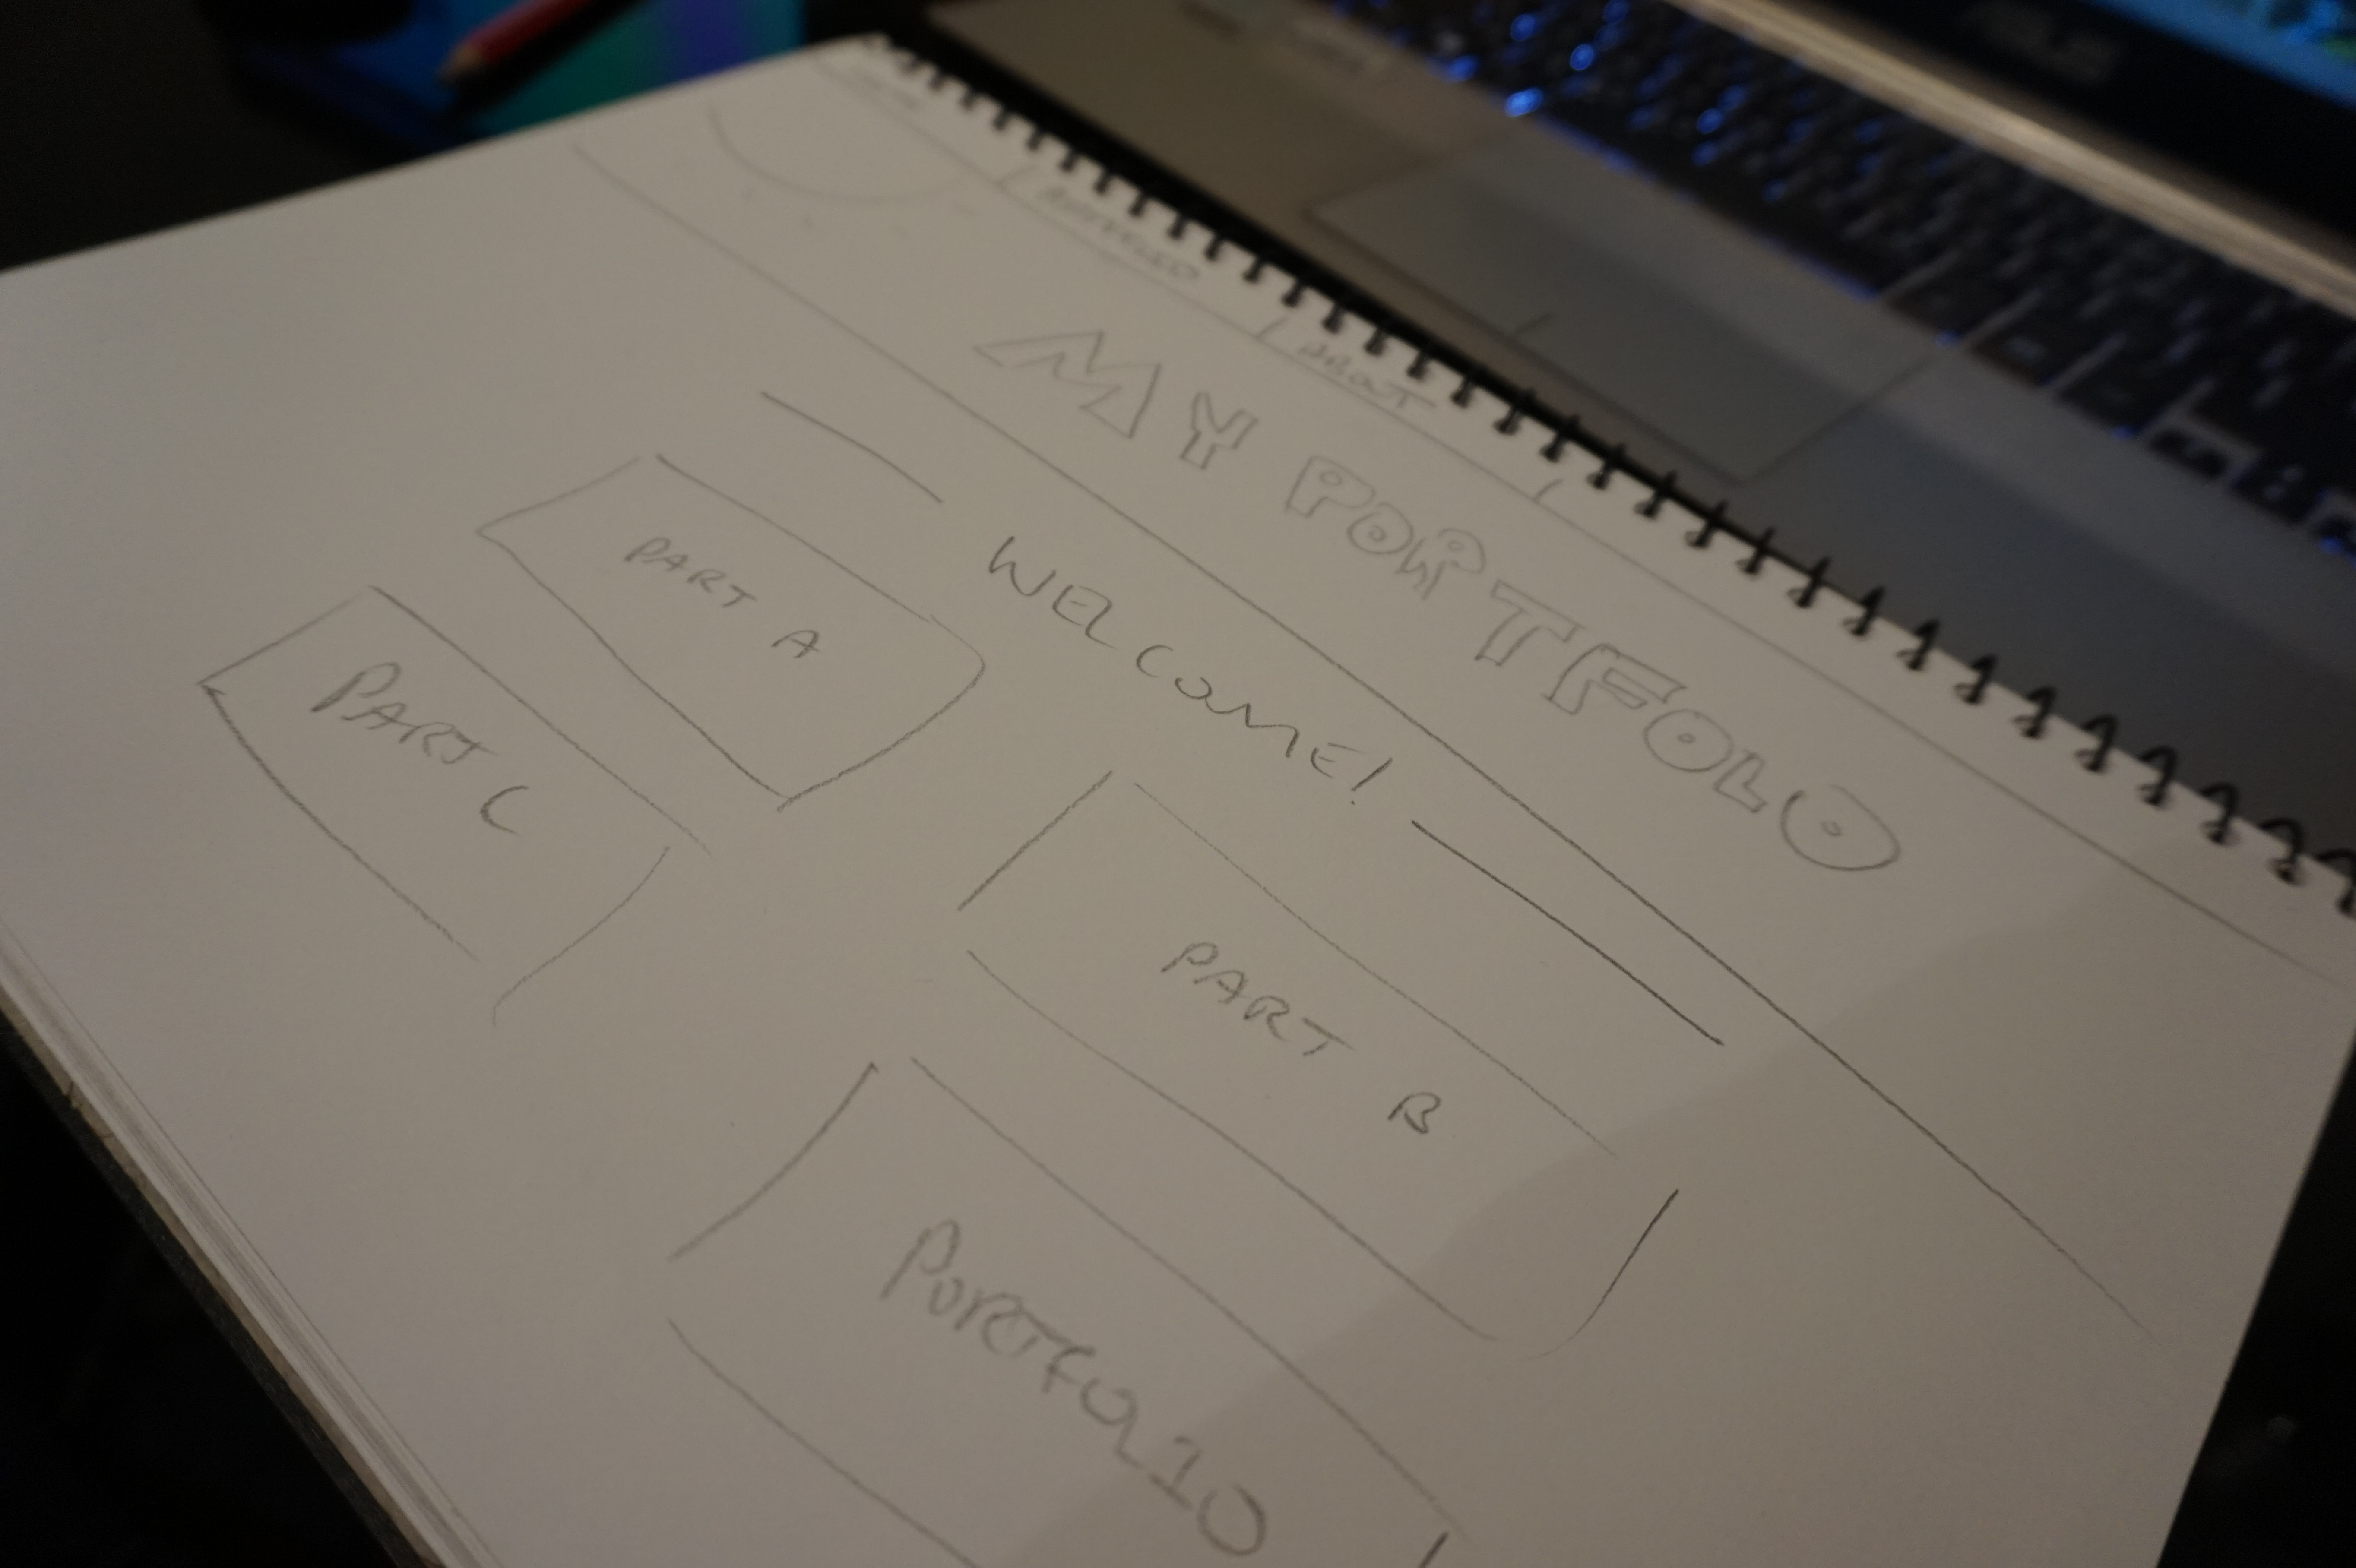 PORTFOLIO
ABOUT
MY PORTFOLO
WELCOME!
PART A
PART B
PART C
PORTFOLIO